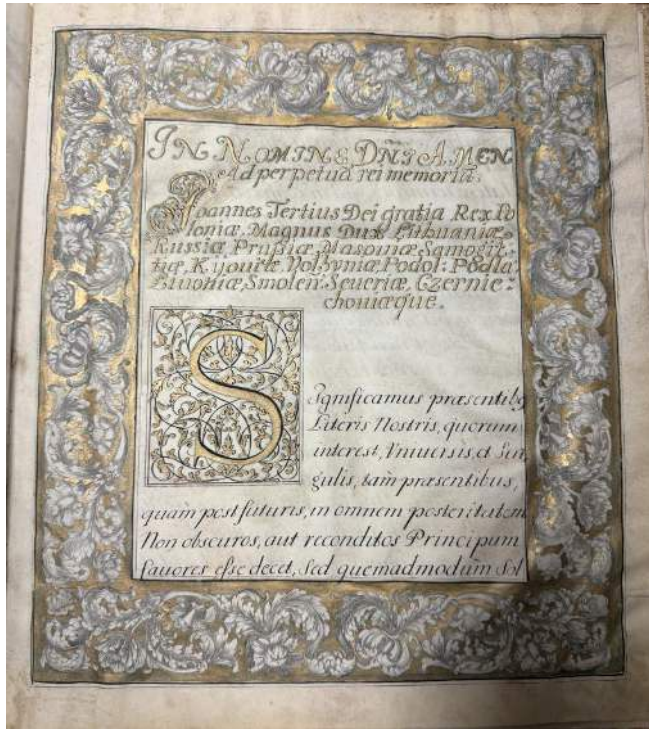 IN NOMINE DNI AMEN
Ad perpetuā rei memoriā.
Joannes Tertius Dei gratia Rex Po
loniæ, Magnus Dux Lithuaniæ
Russiæ, Prussiæ, Masoviæ, Samogit:
tiæ, Kyoviæ, Volhyniæ, Podol: Podla
Livoniæ, Smolen: Severiæ, Czernie:
choviæque.
Significamus præsentibq
Literis Nostris, quorum
interest, Vniuersis, et Sin
gulis, tam præsentibus,
quàm post futuris, in omnem posteritatem
Non obscuros, aut reconditos Principum
fauores esse decet, Sed quemadmodùm Sol